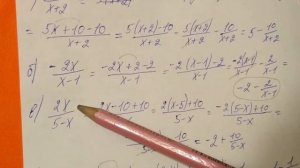 x+2 x+2
= 5x+10-10/x+2 = 5(x+2)-10/x+2 = 5(x+2)/x+2 - 10/x+2 = 5 - 10/x+2
б) -2x/x-1 = -2x+2-2/x-1 = -2(x-1)-2/x-1 = -2(x-1)/x-1 - 2/x-1 =
-2 - 2/x-1
в) 2x/5-x = 2x-10+10/5-x = 2(x-5)+10/5-x = -2(5-x)+10/5-x =
10/5-x = -2 + 10/5-x